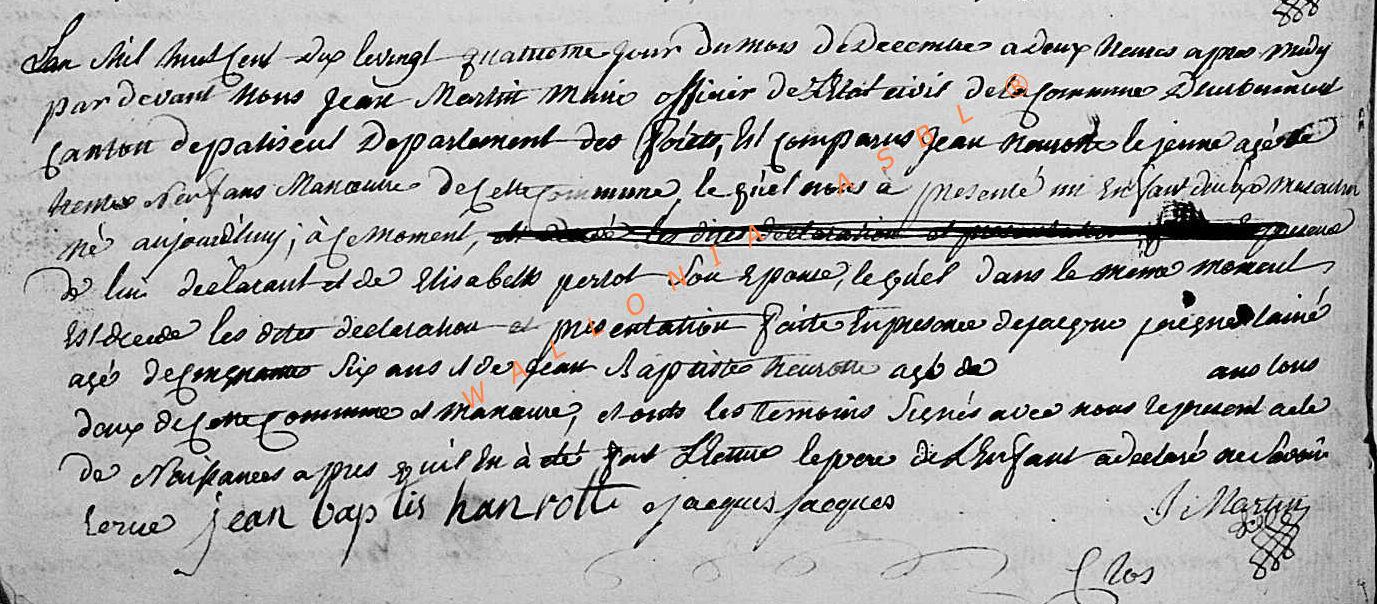 L'an Mil huit Cent dix le vingt quatrieme jour du mois de Decembre a deux heures apres Midy
par devant Nous Jean Martin Maire officier de l'Etat civil de la Commune
Canton de paliseul Departement des forêts, Est Comparus Jean heurotte le jeune agé de
trente Neuf ans Manœuvre de Cette Commune, le quel nous à presenté un Enfant du sexe masculin
né aujourd'huy, à Ce Moment, declaration et presentation
de lui declarant et de Elisabeth perlot son Epouse, le quel dans le meme moment
Est decede les dites declaration et presentation faite En presence de jacque l'ainé
agé de Cinquante Six ans et de Jean Baptiste heurotte agé de ans tous
deux de Cette Commune et Manœuvre, et ont les temoins Signés avec nous le present acte
de Naissances apres qu'il En à été fait Lecture le pere de l'Enfant a declaré ne Savoir
Ecrire jean baptis hanrotte jacques jacques J Martin
WALLONIA ASBL ®